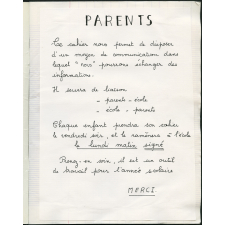 PARENTS
Ce cahier nous permet de disposer
d'un moyen de communication dans
lequel "nous" pourrons échanger des
informations.
Il servira de liaison
- parents - école
- école - parents
Chaque enfant prendra son cahier
le vendredi soir, et le ramènera à l'école
le lundi matin signé
Prenez-en soin, il est un outil
de travail pour l'année scolaire
MERCI